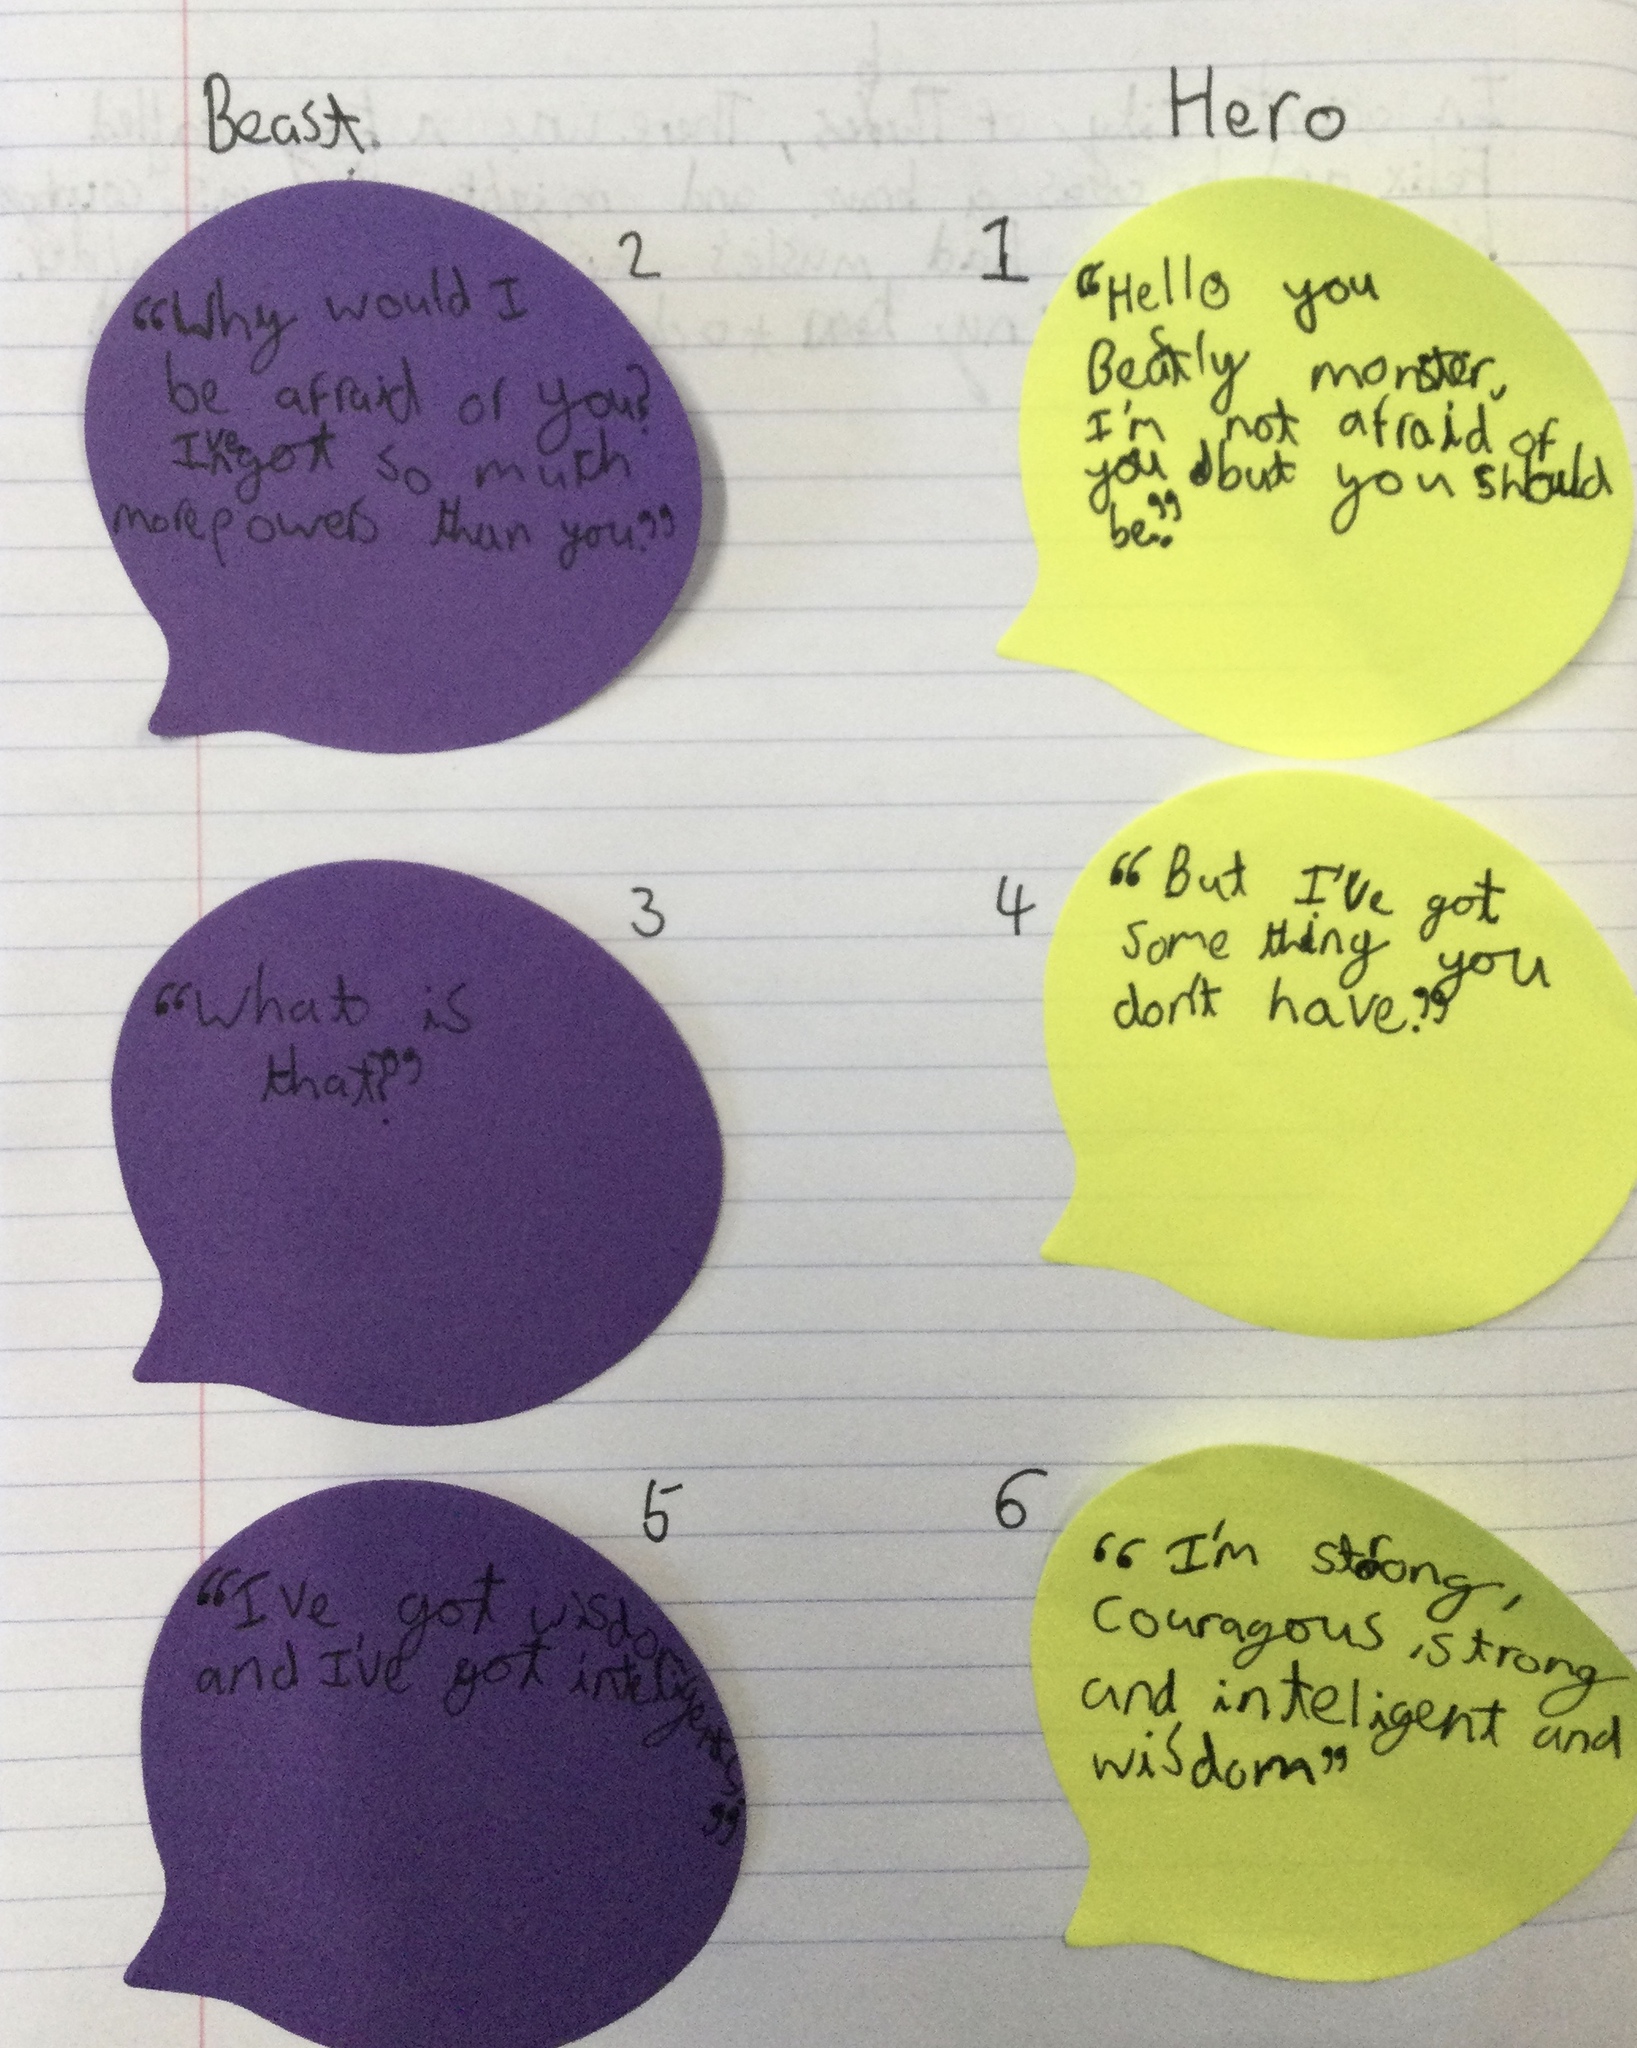 Beast.
Hero
2
"Why would I
be afraid of you?
I've got so much
more powers than you."
1
"Hello you
Beastly monster,
I'm not afraid of
you but you should
be."
3
"What is
that?"
4
"But I've got
some thing you
don't have."
5
"I've got wisdom
and I've got inteligents.
"
6
"I'm strong,
couragous, strong
and inteligent and
wisdom"